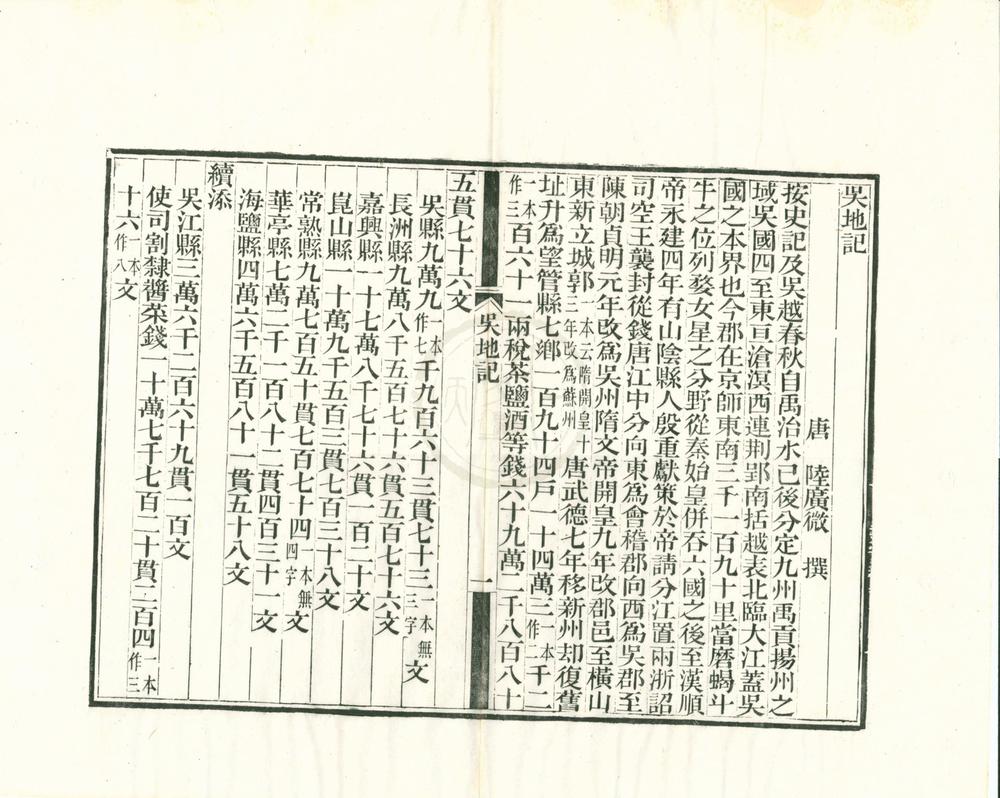 吳地記
唐 陸廣微 撰
按史記及吳越春秋自禹治水已後分定九州禹貢揚州之
域吳國四至東亘滄溟西連荆郢南括越表北臨大江蓋吳
國之本界也今郡在京師東南三千一百九十里當磨蝎斗
牛之位列婺女星之分野從秦始皇併吞六國之後至漢順
帝永建四年有山陰縣人殷重獻策於帝請分江置兩浙詔
司空王襲封從錢唐江中分向東爲會稽郡向西爲吳郡至
陳朝貞明元年改爲吳州隋文帝開皇九年改郡邑至橫山
東新立城郭一本云隋開皇十三年改爲蘇州唐武德七年移新州却復舊
址升爲望管縣七鄉一百九十四戸一十四萬三一本作二千二
一本作三百六十一兩稅茶鹽酒等錢六十九萬二千八百八十
吳地記
一
五貫七十六文
吳縣九萬九一本作七千九百六十三貫七十三一本無三字文
長洲縣九萬八千五百七十六貫五百七十六文
嘉興縣一十七萬八千七十六貫一百二十文
崑山縣一十萬九千五百三貫七百三十八文
常熟縣九萬七百五十貫七百七十四一本無四字文
華亭縣七萬二千一百八十二貫四百三十一文
海鹽縣四萬六千五百八十一貫五十八文
續添
吳江縣三萬六千二百六十九貫一百文
使司割隸醬菜錢一十萬七千七百二十貫二百四一本作三
十六一本作八文